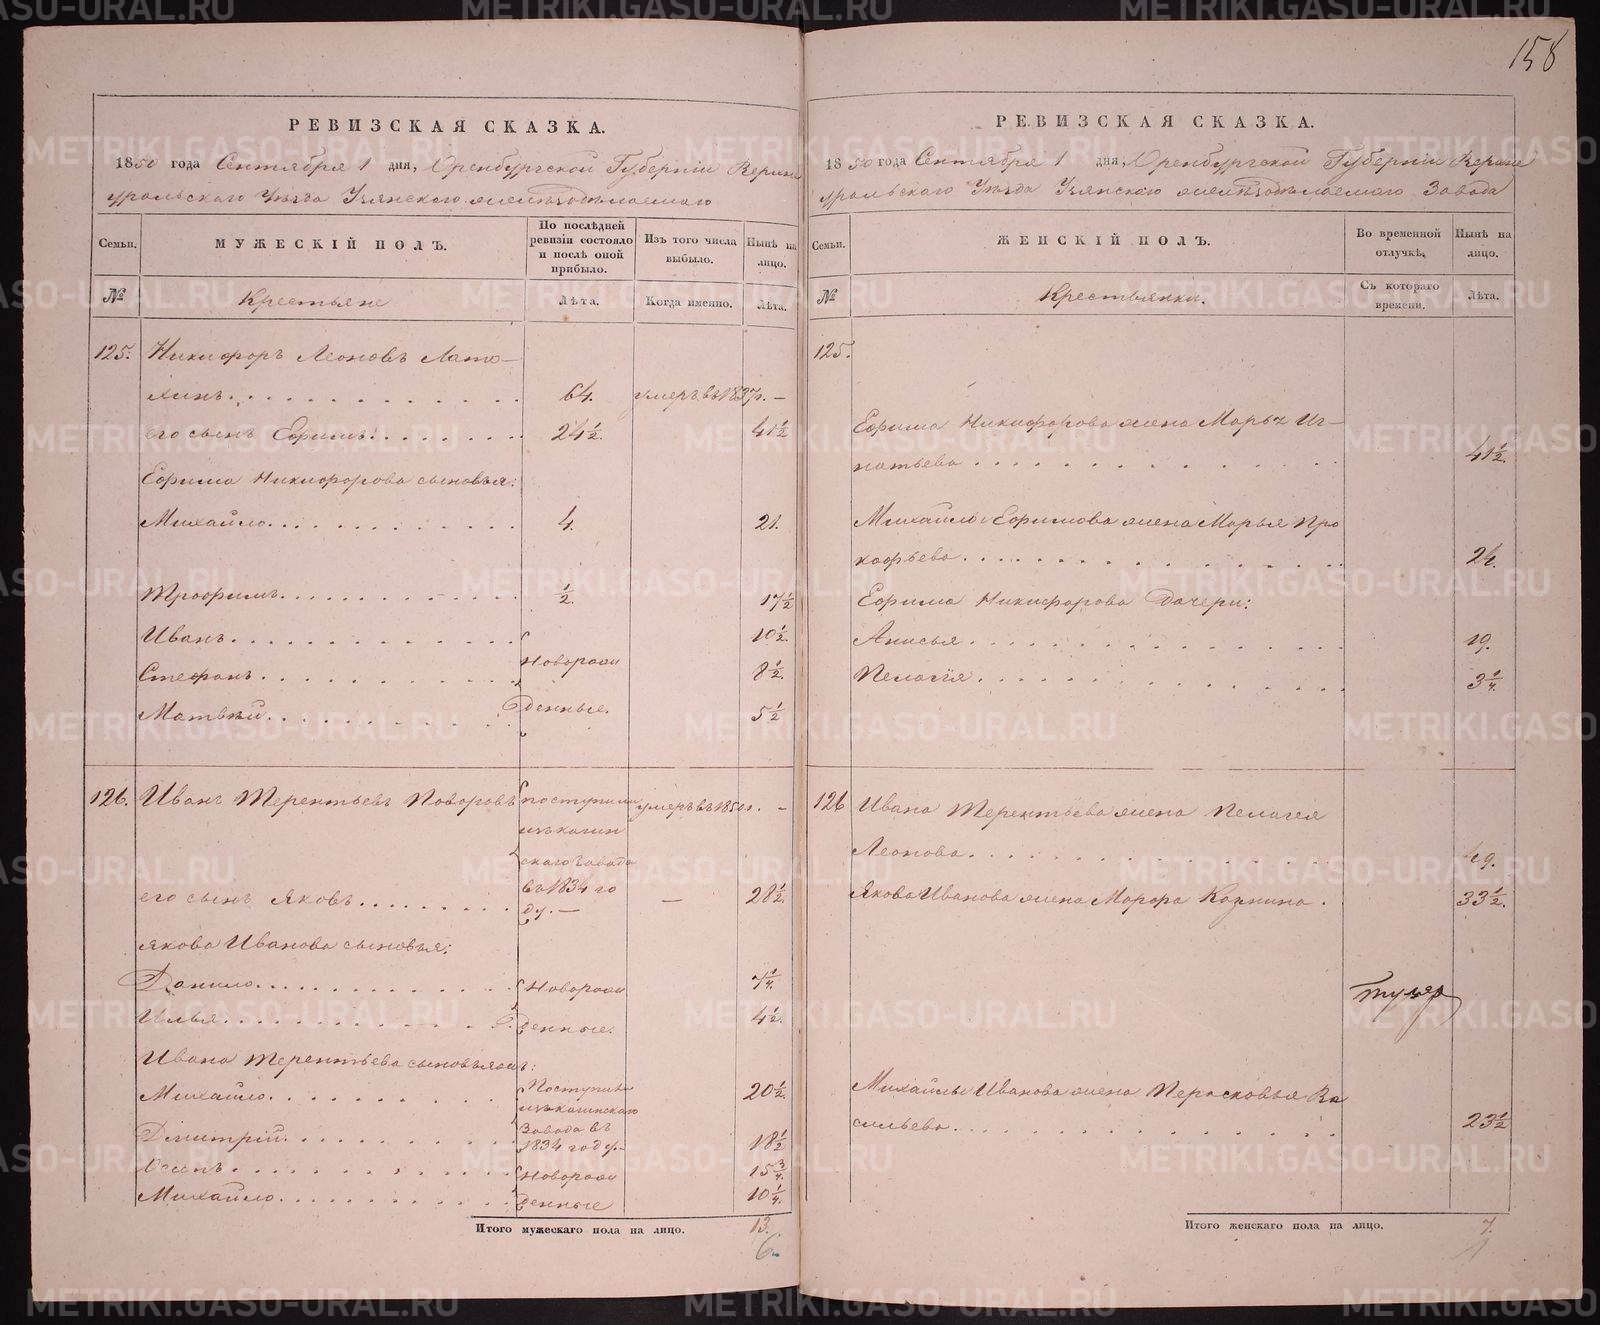 158
РЕВИЗСКАЯ СКАЗКА.
1850 года Сентября 1 дня, Оренбургской Губерніи Верхне
уральскаго Уѣзда Узянскаго желѣзодѣлаемаго
Семьи.
МУЖЕСКІЙ ПОЛЪ.
По послѣдней ревизіи состояло и послѣ оной прибыло.
Изъ того числа выбыло.
Нынѣ на лицо.
№
Крестьяне
Лѣта.
Когда именно.
Лѣта.
125. Никифоръ Леоновъ Лато-
хинъ. 64. умеръ въ 1837г. –
его сынъ Ефимъ. 24½. 41½
Ефима Никифорова сыновья:
Михайло. 4. 21.
Трофимъ. ½. 17½
Иванъ. 10½.
Новорож
Стефанъ. 8½.
денные.
Матвѣй. 5½
126. Иванъ Терентьевъ Поворовъ поступили умеръ въ 1850г. –
изъ кагин
скаго завода
въ 1834 го
его сынъ Яковъ. ду. – – 28½.
Якова Иванова сыновья:
Данило. Новорож 7¼.
Илья. денные. 4½.
Ивана Терентьева сыновья:
Михайло. Поступили 20½.
изъ кагинскаго
Завода въ
Дмитрій. 1834 году – 18½
Осипъ. Новорож 15¾.
Михайло. денные 10¼.
Итого мужескаго пола на лицо. 13.
6.
РЕВИЗСКАЯ СКАЗКА.
1850 года Сентября 1 дня, Оренбургской Губерніи Верхне
уральскаго Уѣзда Узянскаго желѣзодѣлаемаго Завода
Семьи.
ЖЕНСКІЙ ПОЛЪ.
Во временной отлучкѣ.
Нынѣ на лицо.
№
Крестьянки.
Съ котораго времени.
Лѣта.
125.
Ефима Никифорова жена Марья Иг-
натьева 41½.
Михайлы Ефимова жена Марья Про
кофьева. 24.
Ефима Никифорова Дочери:
Анисья 19.
Пелагія. 3¼.
126 Ивана Терентьева жена Пелагея
Леонова. 49.
Якова Иванова жена Марфа Козмина. 33½.
Михайлы Иванова жена Парасковья Ва
сильева. 23½
Итого женскаго пола на лицо. 7.
METRIKI.GASO-URAL.RU